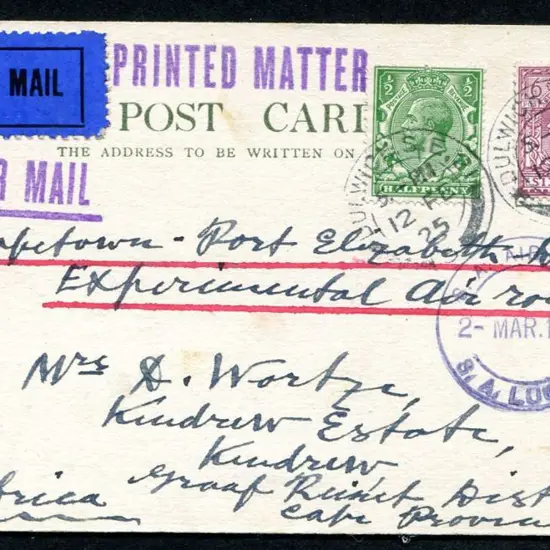 MAIL
PRINTED MATTER
POST CAR
THE ADDRESS TO BE WRITTEN ON
R MAIL
1/2 1/2
HALFPENNY
DULWICH
S.E.
12 FE
25
DULWICH
2- MAR.1
S.A.
petown - Port Elizabeth
Experimental Air ro
Mrs D. Wortze,
Kendrew Estate,
Kendrew,
Graaf Reinet Dist
frica Cape Provin